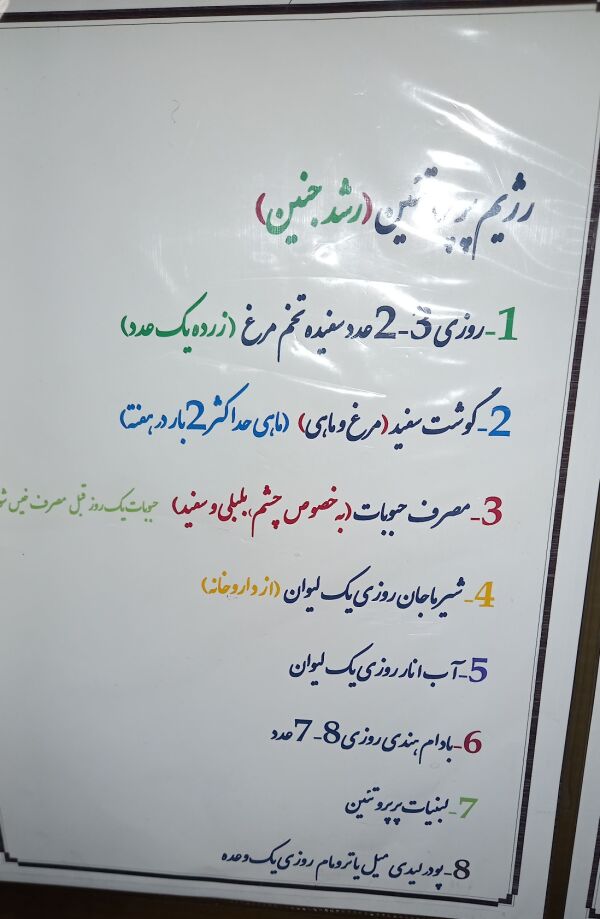 رژیم پر پروتئین (رشد جنین)
1-روزی 3-2 عدد سفیده تخم مرغ (زرده یک عدد)
2-گوشت سفید (مرغ و ماهی) (ماهی حداکثر 2 بار در هفته)
3-مصرف حبوبات (به خصوص چشم بلبلی و سفید) حبوبات یک روز قبل مصرف خیس
4-شیر ماجان روزی یک لیوان (از داروخانه)
5-آب انار روزی یک لیوان
6-بادام هندی روزی 8-7 عدد
7-لبنیات پر پروتئین
8-پودر لیدی میل یا ترومام روزی یک وعده